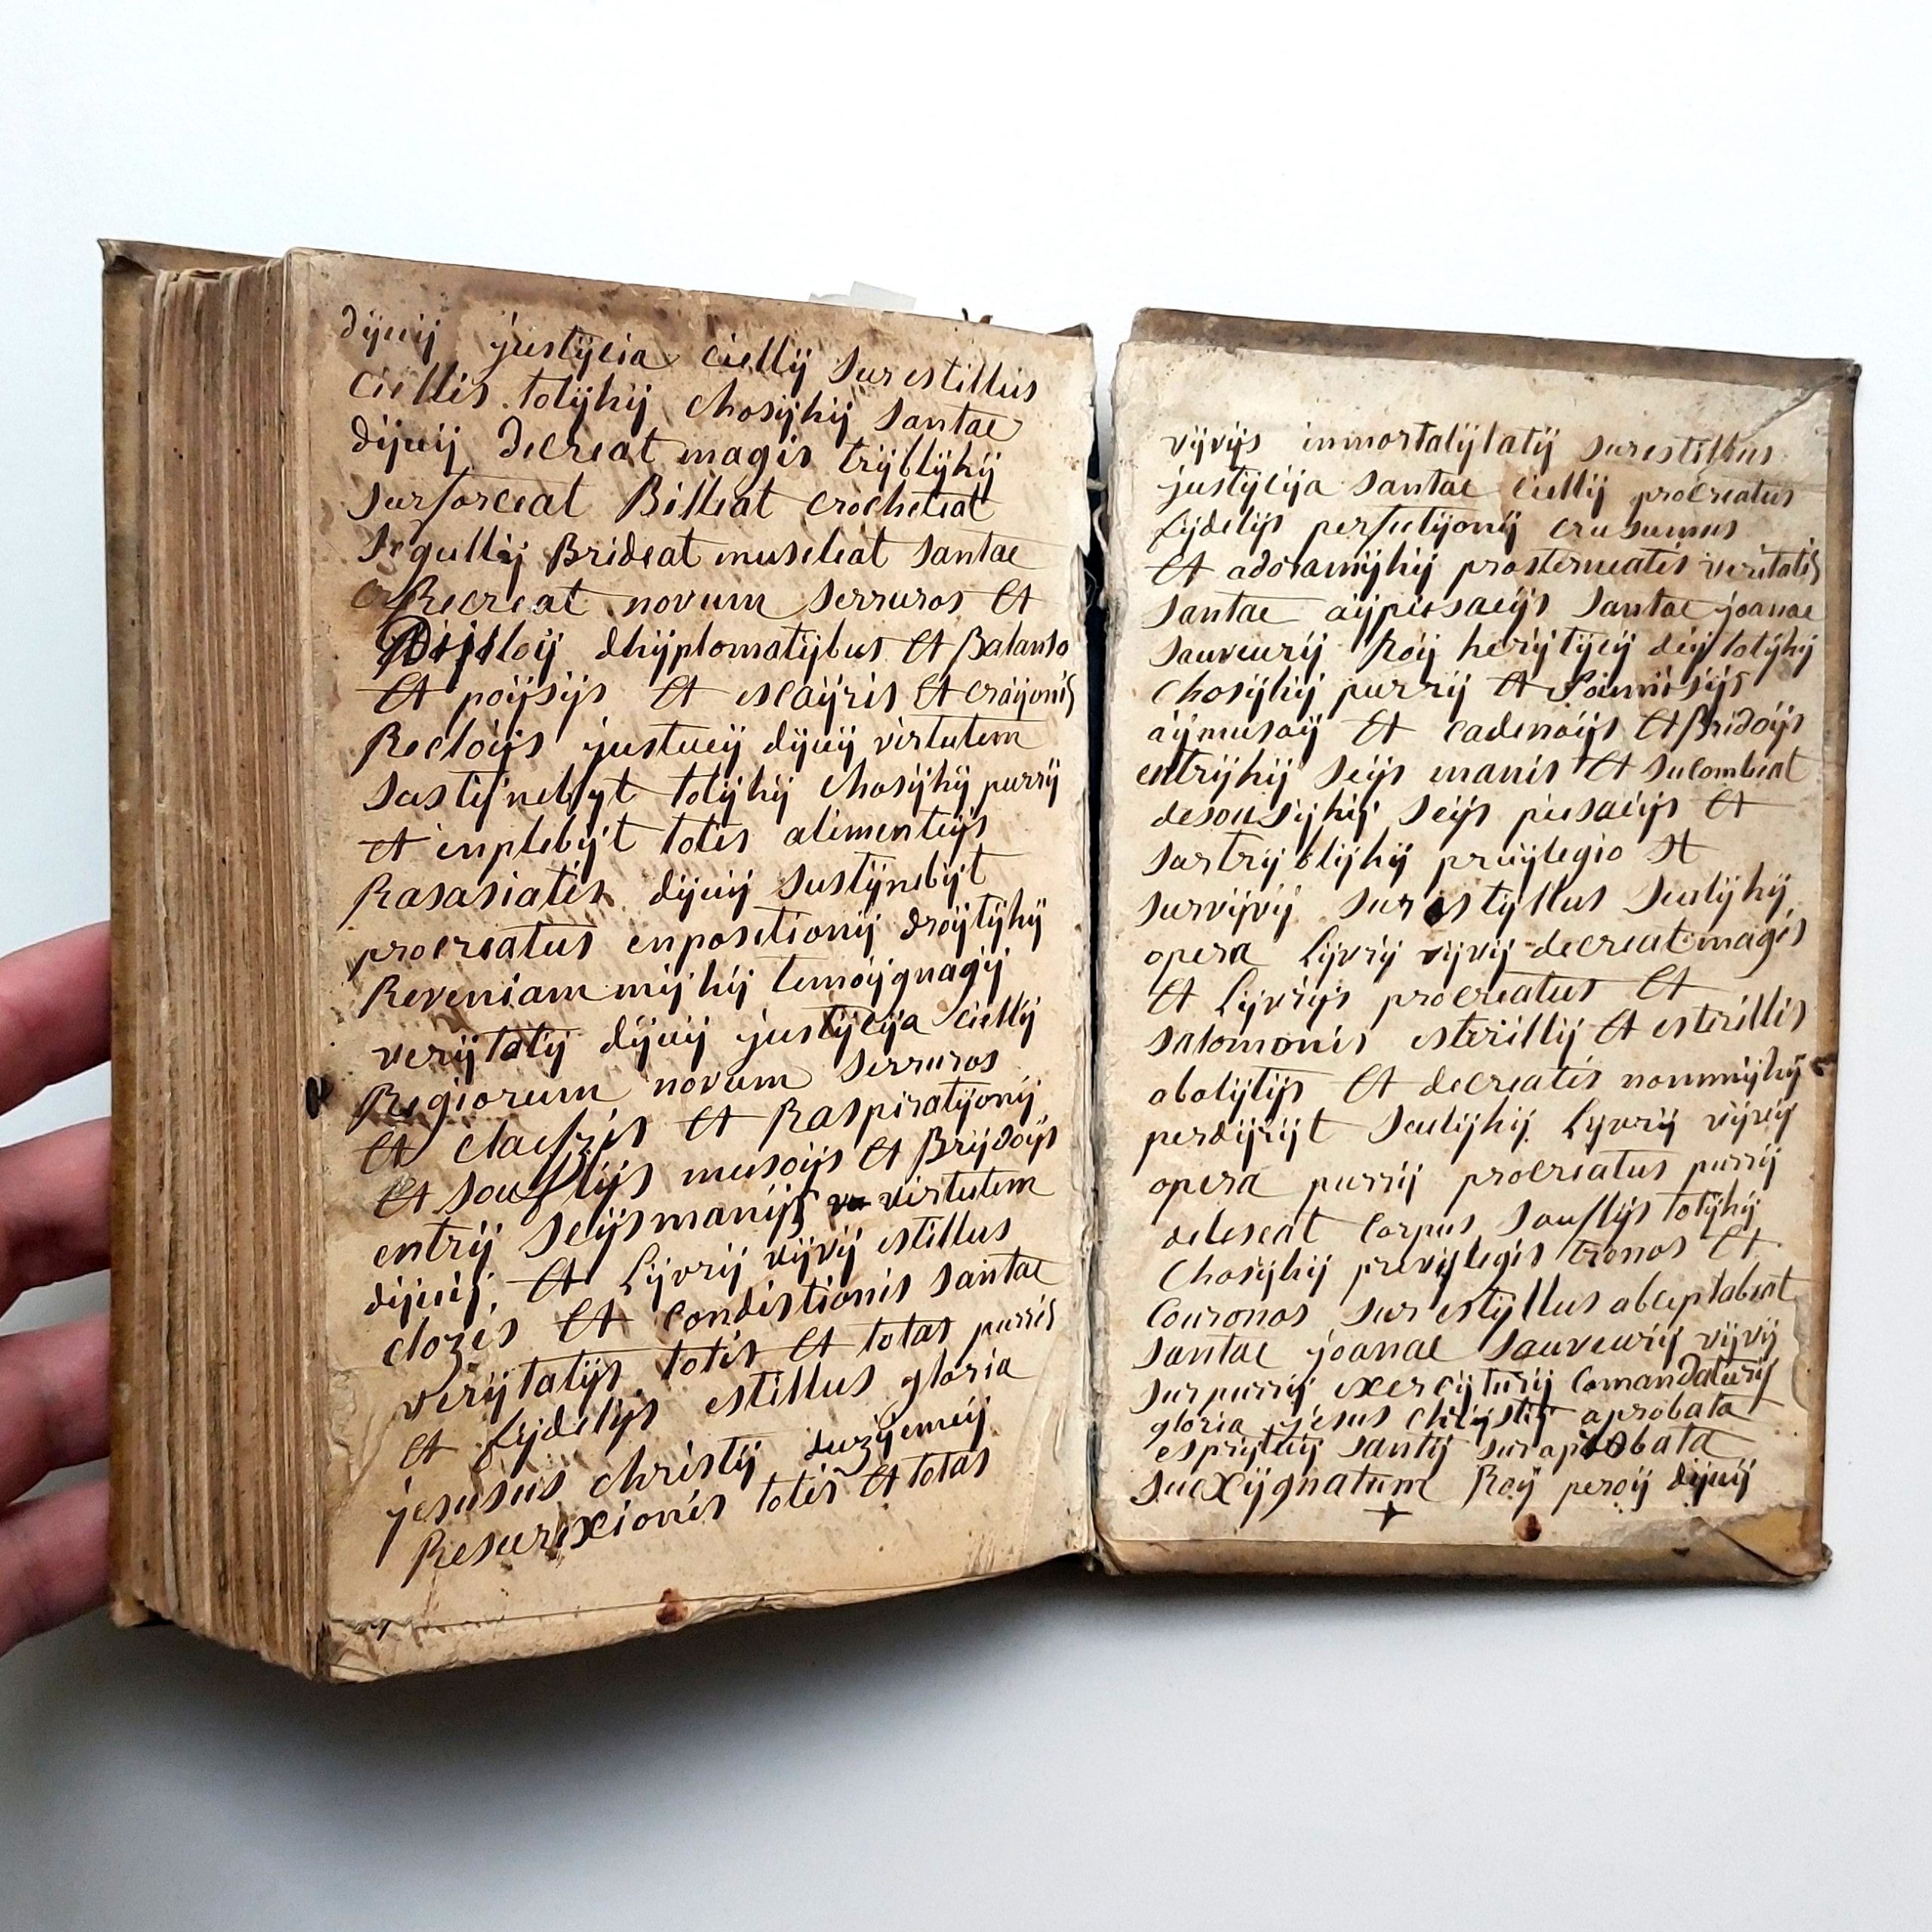 dijuij justijcia ciellij sur estillus
Ciellis totijhij chosijhij santae
dijuij decreat magis trijblijhij
sursorceat Billeat crocheteat
Brideat museleat santae
Recreat novum serruros et
dhijplomatijbus et Balanso
et poijsijs et escaijris et craijonis
Recloijs justueij dijuij virtutem
sastijnebijt totijhij chosijhij purrij
et inplebijt totis alimentijs
Rasasiatis dijuij sustijnebijt
procreatus enpositionij droijtijhij
Reveniam mijhij temoijgnagij
verijtatij dijuij justijcija ciellij
Regiorum novum serruros
et clacfris et Raspiratijonij
et souflijs musoijs et Brijdoijs
entrij seijs manijs virtutem
dijuij, et Lijvrij vijvij estillus
clozis et condistionis santae
verijtatijs totis et totas purris
et fijdelijs estillus gloria
jesusus christij
Resurixcionis totis et totas
vijvijs inmortalijtatij sur estillus
justijcija santae ciellij procreatus
fijdelijs persutijonij crusumus
et adoramijhij prosterneatis veritatis
santae aijpissaeijs santae joanae
sauveurij Roij herijtijeij deij totijhij
chosijhij purrij et
aijmusoij et cadenaijs et Bridoijs
entrijhij seijs manis et sucombeat
desousijhij seijs piesaeijs et
sartrijblijhij pruijlegio et
survijvij sur estijllus seulijhij
opera Lijvrij vijvij decreat magis
et Lijvrijs procreatus et
salomonis esterillij et esterillis
abolijtijs et decreatis nommijhij
perdijrijt seulijhij Lijvrij vijvij
opera purrij procreatus purrij
deleseat corpus souflijs totijhij
chosijhij previjlegis tronos et
couronos sur estijllus abceptabeat
santae joanae sauveurij vijvij
sur purrij exercijturij comandaturij
gloria jesus chrijstij aprobata
esprijtuij santij sur aprobata
suexijgnatum Roij peroij dijuij